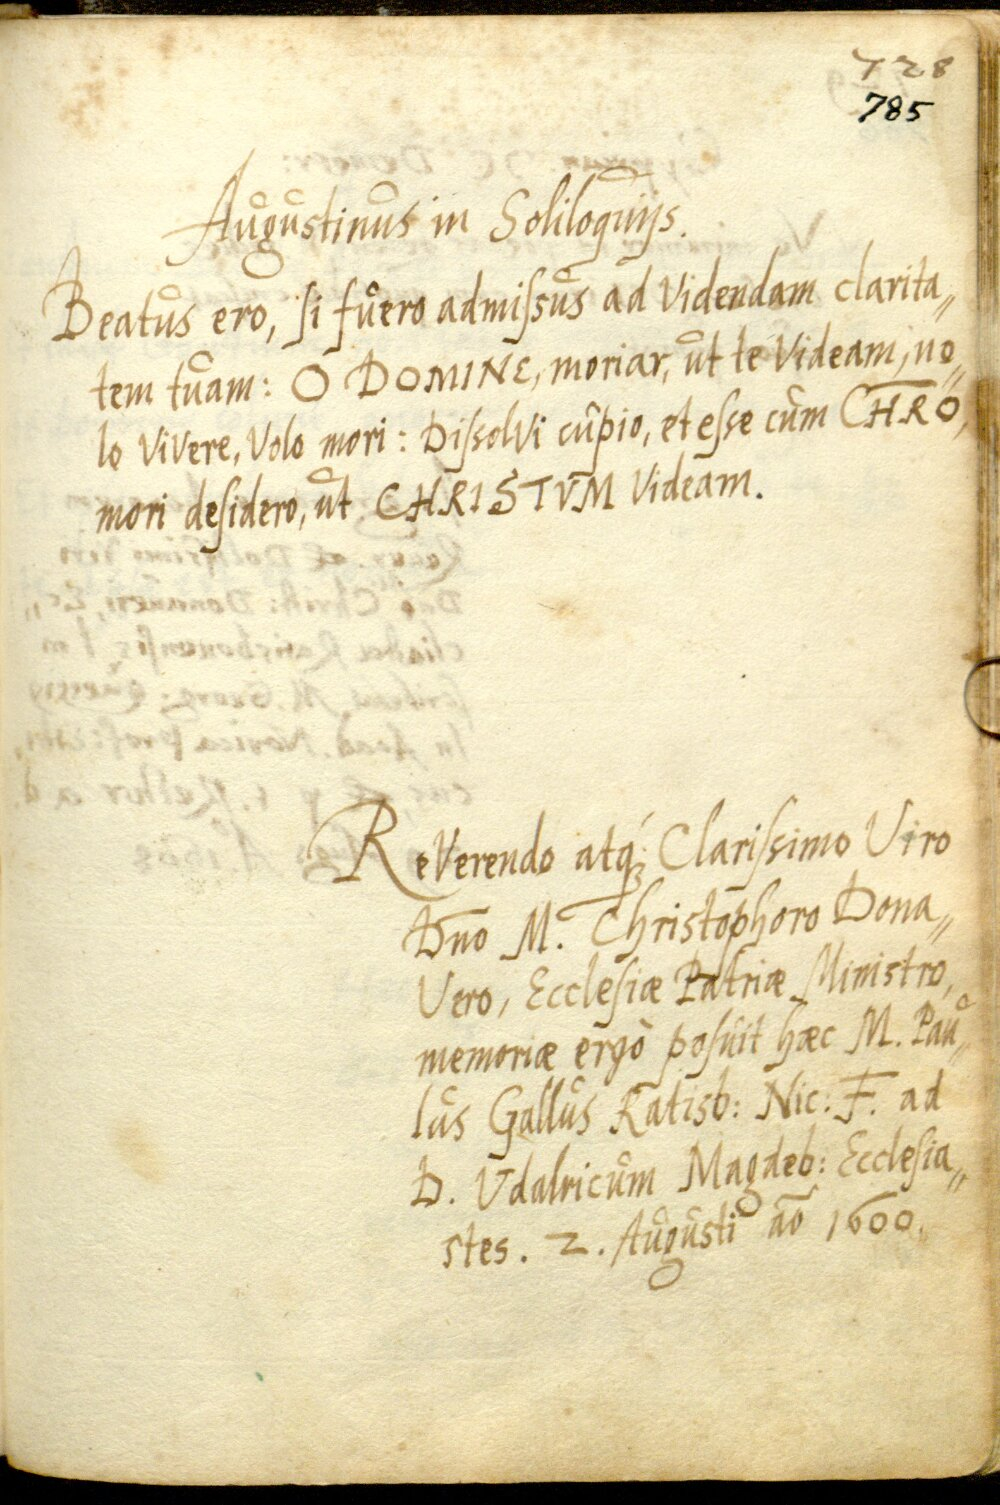 728
785
Augustinus in Soliloquijs.
Beatus ero, si fuero admissus ad Videndam clarita„
tem tuam: O DOMINE, moriar, ut te Videam, no„
lo ViVere, Volo mori: DissolVi cupio, et esse cum CHRŌ,
mori desidero, ut CHRISTVM Videam.
ReVerendo atq́ꝫ Clarissimo Viro
Dn̄o M. Christophoro Dona„
Vero, Ecclesiæ Patriæ Ministro,
memoriæ ergò posuit hæc M. Pau„
lus Gallus Ratisb: Nic: F. ad
D. Vdalricum Magdeb: Ecclesia„
stes. 2. Augusti aō 1600.